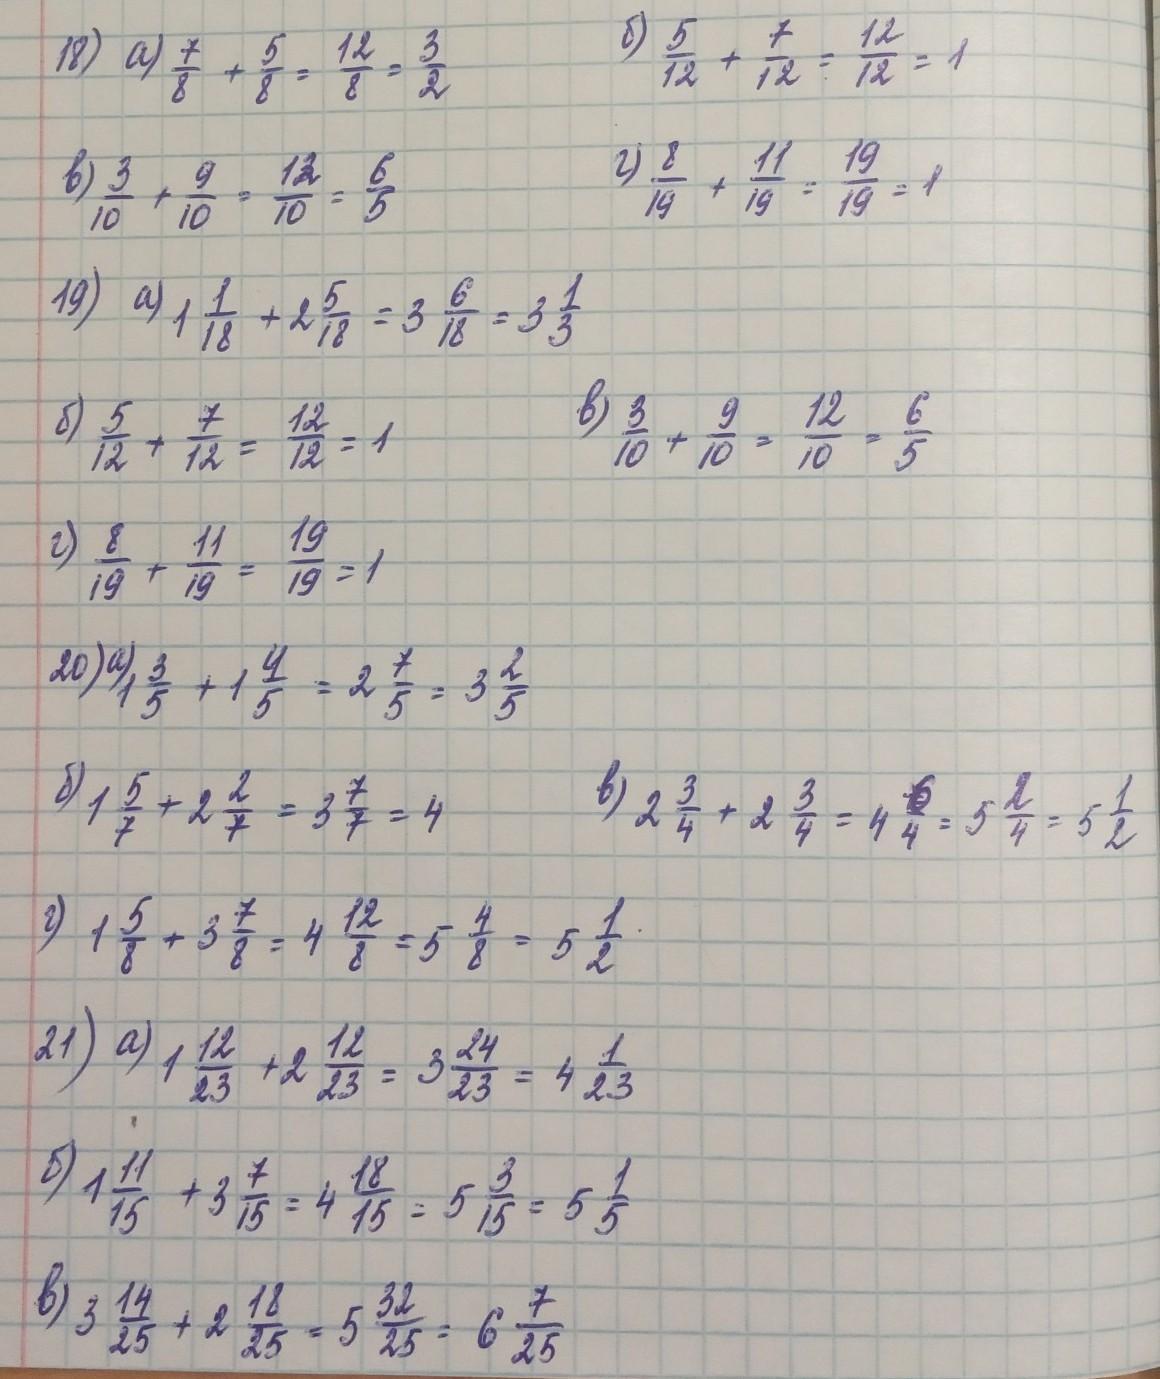 18) а) 7/8 + 5/8 = 12/8 = 3/2 б) 5/12 + 7/12 = 12/12 = 1
в) 3/10 + 9/10 = 12/10 = 6/5 г) 8/19 + 11/19 = 19/19 = 1
19) а) 1 1/18 + 2 5/18 = 3 6/18 = 3 1/3
б) 5/12 + 7/12 = 12/12 = 1 в) 3/10 + 9/10 = 12/10 = 6/5
г) 8/19 + 11/19 = 19/19 = 1
20) а) 1 3/5 + 1 4/5 = 2 7/5 = 3 2/5
б) 1 5/7 + 2 2/7 = 3 7/7 = 4 в) 2 3/4 + 2 3/4 = 4 6/4 = 5 2/4 = 5 1/2
г) 1 5/8 + 3 7/8 = 4 12/8 = 5 4/8 = 5 1/2
21) а) 1 12/23 + 2 12/23 = 3 24/23 = 4 1/23
б) 1 11/15 + 3 7/15 = 4 18/15 = 5 3/15 = 5 1/5
в) 3 14/25 + 2 18/25 = 5 32/25 = 6 7/25